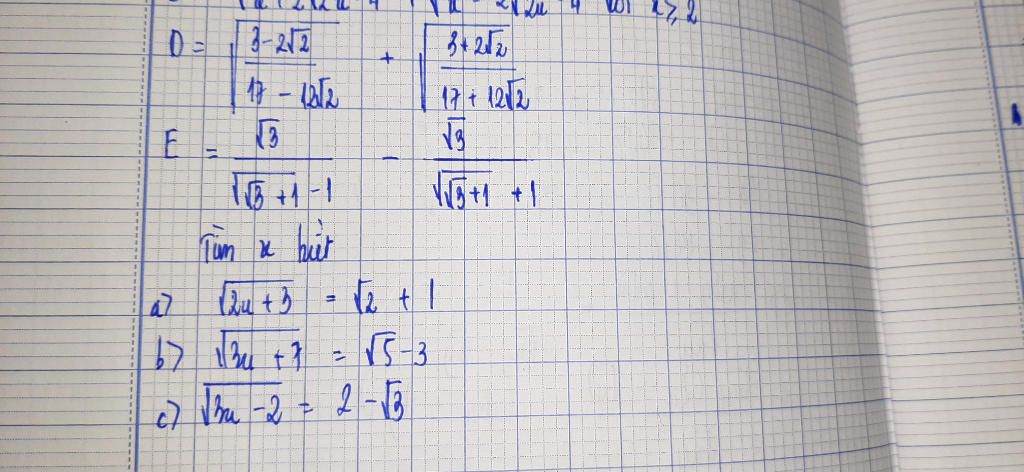 với x ≥ 2
D = √((3 - 2√2)/(17 - 12√2)) + √((3 + 2√2)/(17 + 12√2))
E = √3/(√(√3 + 1) - 1) - √3/(√(√3 + 1) + 1)
Tìm x biết
a) √(2x + 3) = √2 + 1
b) √(3x + 7) = √5 - 3
c) √(3x - 2) = 2 - √3